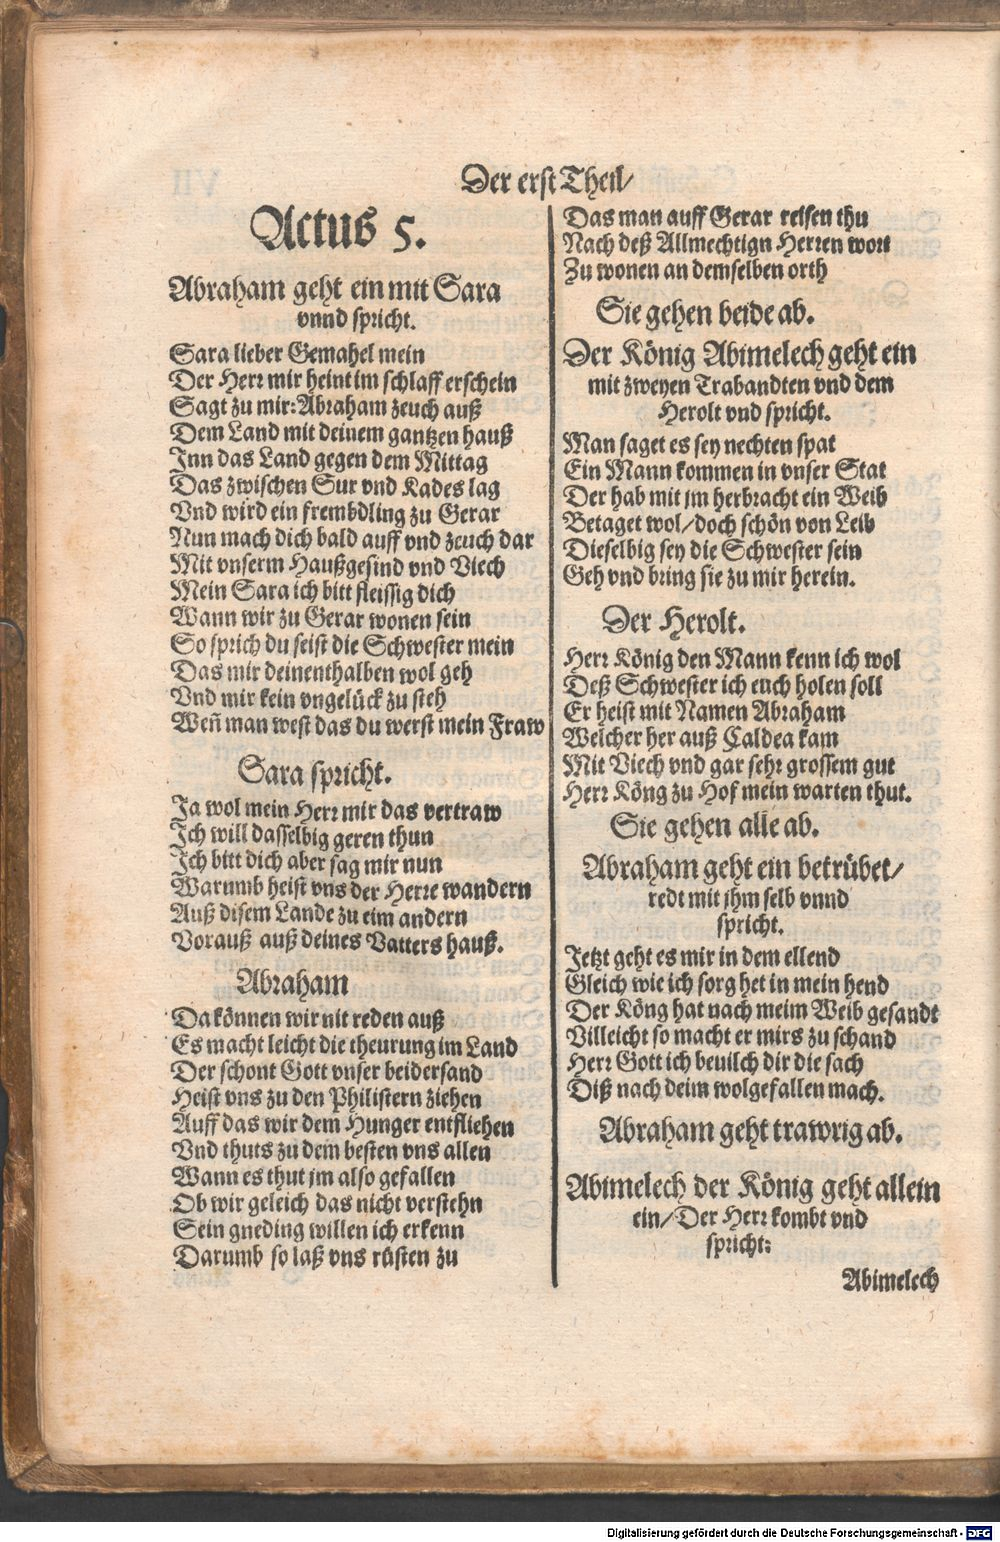 Der erst Theil/
Actus 5.
Abraham geht ein mit Sara
vnnd spricht.
Sara lieber Gemahel mein
Der Herr mir heint im schlaff erschein
Sagt zu mir: Abraham zeuch auß
Dem Land mit deinem gantzen hauß
Inn das Land gegen dem Mittag
Das zwischen Sur vnd Kades lag
Vnd wird ein frembdling zu Gerar
Nun mach dich bald auff vnd zeuch dar
Mit vnserm Haußgesind vnd Viech
Mein Sara ich bitt fleissig dich
Wann wir zu Gerar wonen sein
So sprich du seist die Schwester mein
Das mir deinenthalben wol geh
Vnd mir kein vngelück zu steh
Weñ man west das du werst mein Fraw
Sara spricht.
Ja wol mein Herr mir das vertraw
Ich will dasselbig geren thun
Ich bitt dich aber sag mir nun
Warumb heist vns der Herre wandern
Auß disem Lande zu eim andern
Vorauß auß deines Vatters hauß.
Abraham
Da können wir nit reden auß
Es macht leicht die theurung im Land
Der schont Gott vnser beidersand
Heist vns zu den Philistern ziehen
Auff das wir dem Hunger entfliehen
Vnd thuts zu dem besten vns allen
Wann es thut jm also gefallen
Ob wir geleich das nicht verstehn
Sein gneding willen ich erkenn
Darumb so laß vns rüsten zu
Das man auff Gerar reisen thu
Nach deß Allmechtign Herren wort
Zu wonen an demselben orth
Sie gehen beide ab.
Der König Abimelech geht ein
mit zweyen Trabandten vnd dem
Herolt vnd spricht.
Man saget es sey nechten spat
Ein Mann kommen in vnser Stat
Der hab mit jm herbracht ein Weib
Betaget wol/doch schön von Leib
Dieselbig sey die Schwester sein
Geh vnd bring sie zu mir herein.
Der Herolt.
Herr König den Mann kenn ich wol
Deß Schwester ich euch holen soll
Er heist mit Namen Abraham
Welcher her auß Caldea kam
Mit Viech vnd gar sehr grossem gut
Herr Köng zu Hof mein warten thut.
Sie gehen alle ab.
Abraham geht ein betrübet/
redt mit jhm selb vnnd
spricht.
Jetzt geht es mir in dem ellend
Gleich wie ich sorg het in mein hend
Der Köng hat nach meim Weib gesandt
Villeicht so macht er mirs zu schand
Herr Gott ich beuilch dir die sach
Diß nach deim wolgefallen mach.
Abraham geht trawrig ab.
Abimelech der König geht allein
ein/Der Herr kombt vnd
spricht:
Abimelech
Digitalisierung gefördert durch die Deutsche Forschungsgemeinschaft - DFG